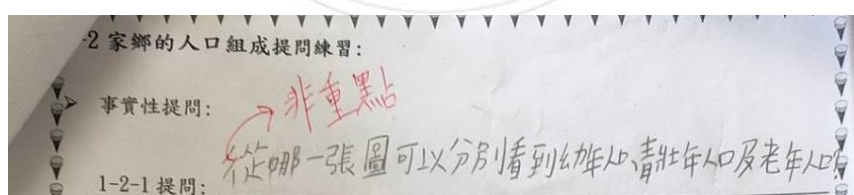 -2 家鄉的人口組成提問練習:
事實性提問:
非重點
1-2-1 提問: 從哪一張圖可以分別看到幼年人口、青壯年人口及老年人口